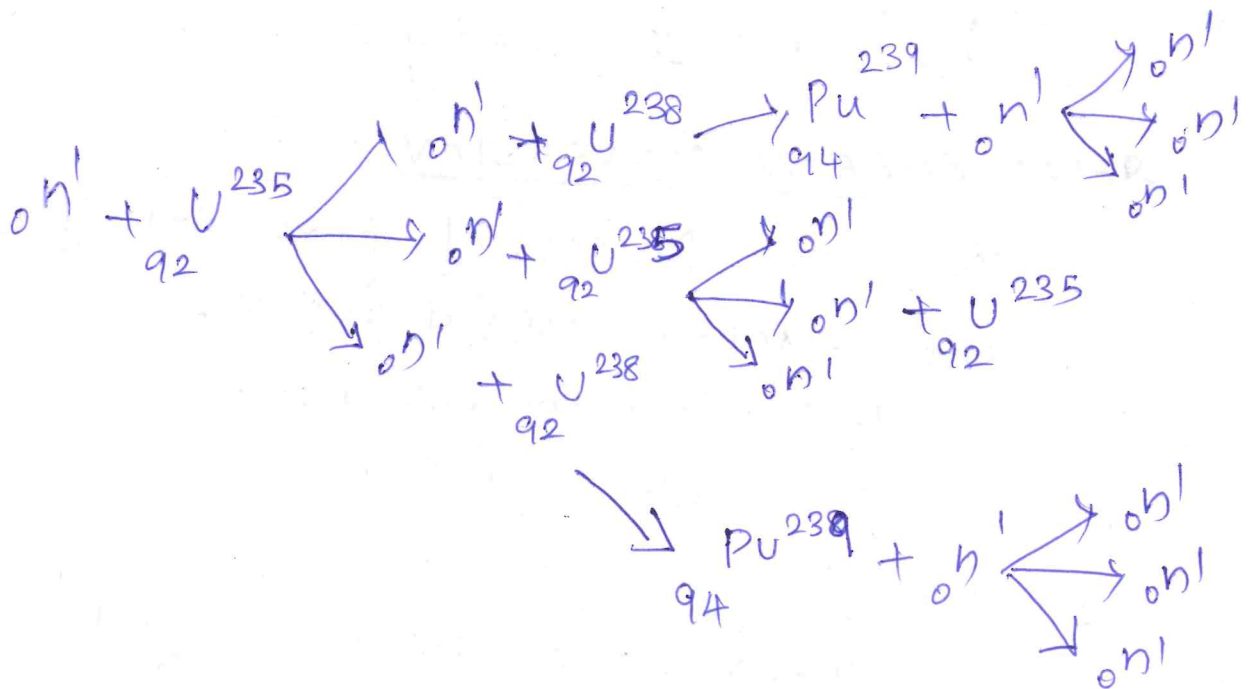 ₀n¹ + ₉₂U²³⁵ → ₀n¹ + ₉₂U²³⁸ → ₉₄Pu²³⁹ + ₀n¹ → ₀n¹
₀n¹
₀n¹
→ ₀n¹ + ₉₂U²³⁵ → ₀n¹
₀n¹ + ₉₂U²³⁵
₀n¹
→ ₀n¹ + ₉₂U²³⁸
→ ₉₄Pu²³⁹ + ₀n¹ → ₀n¹
₀n¹
₀n¹